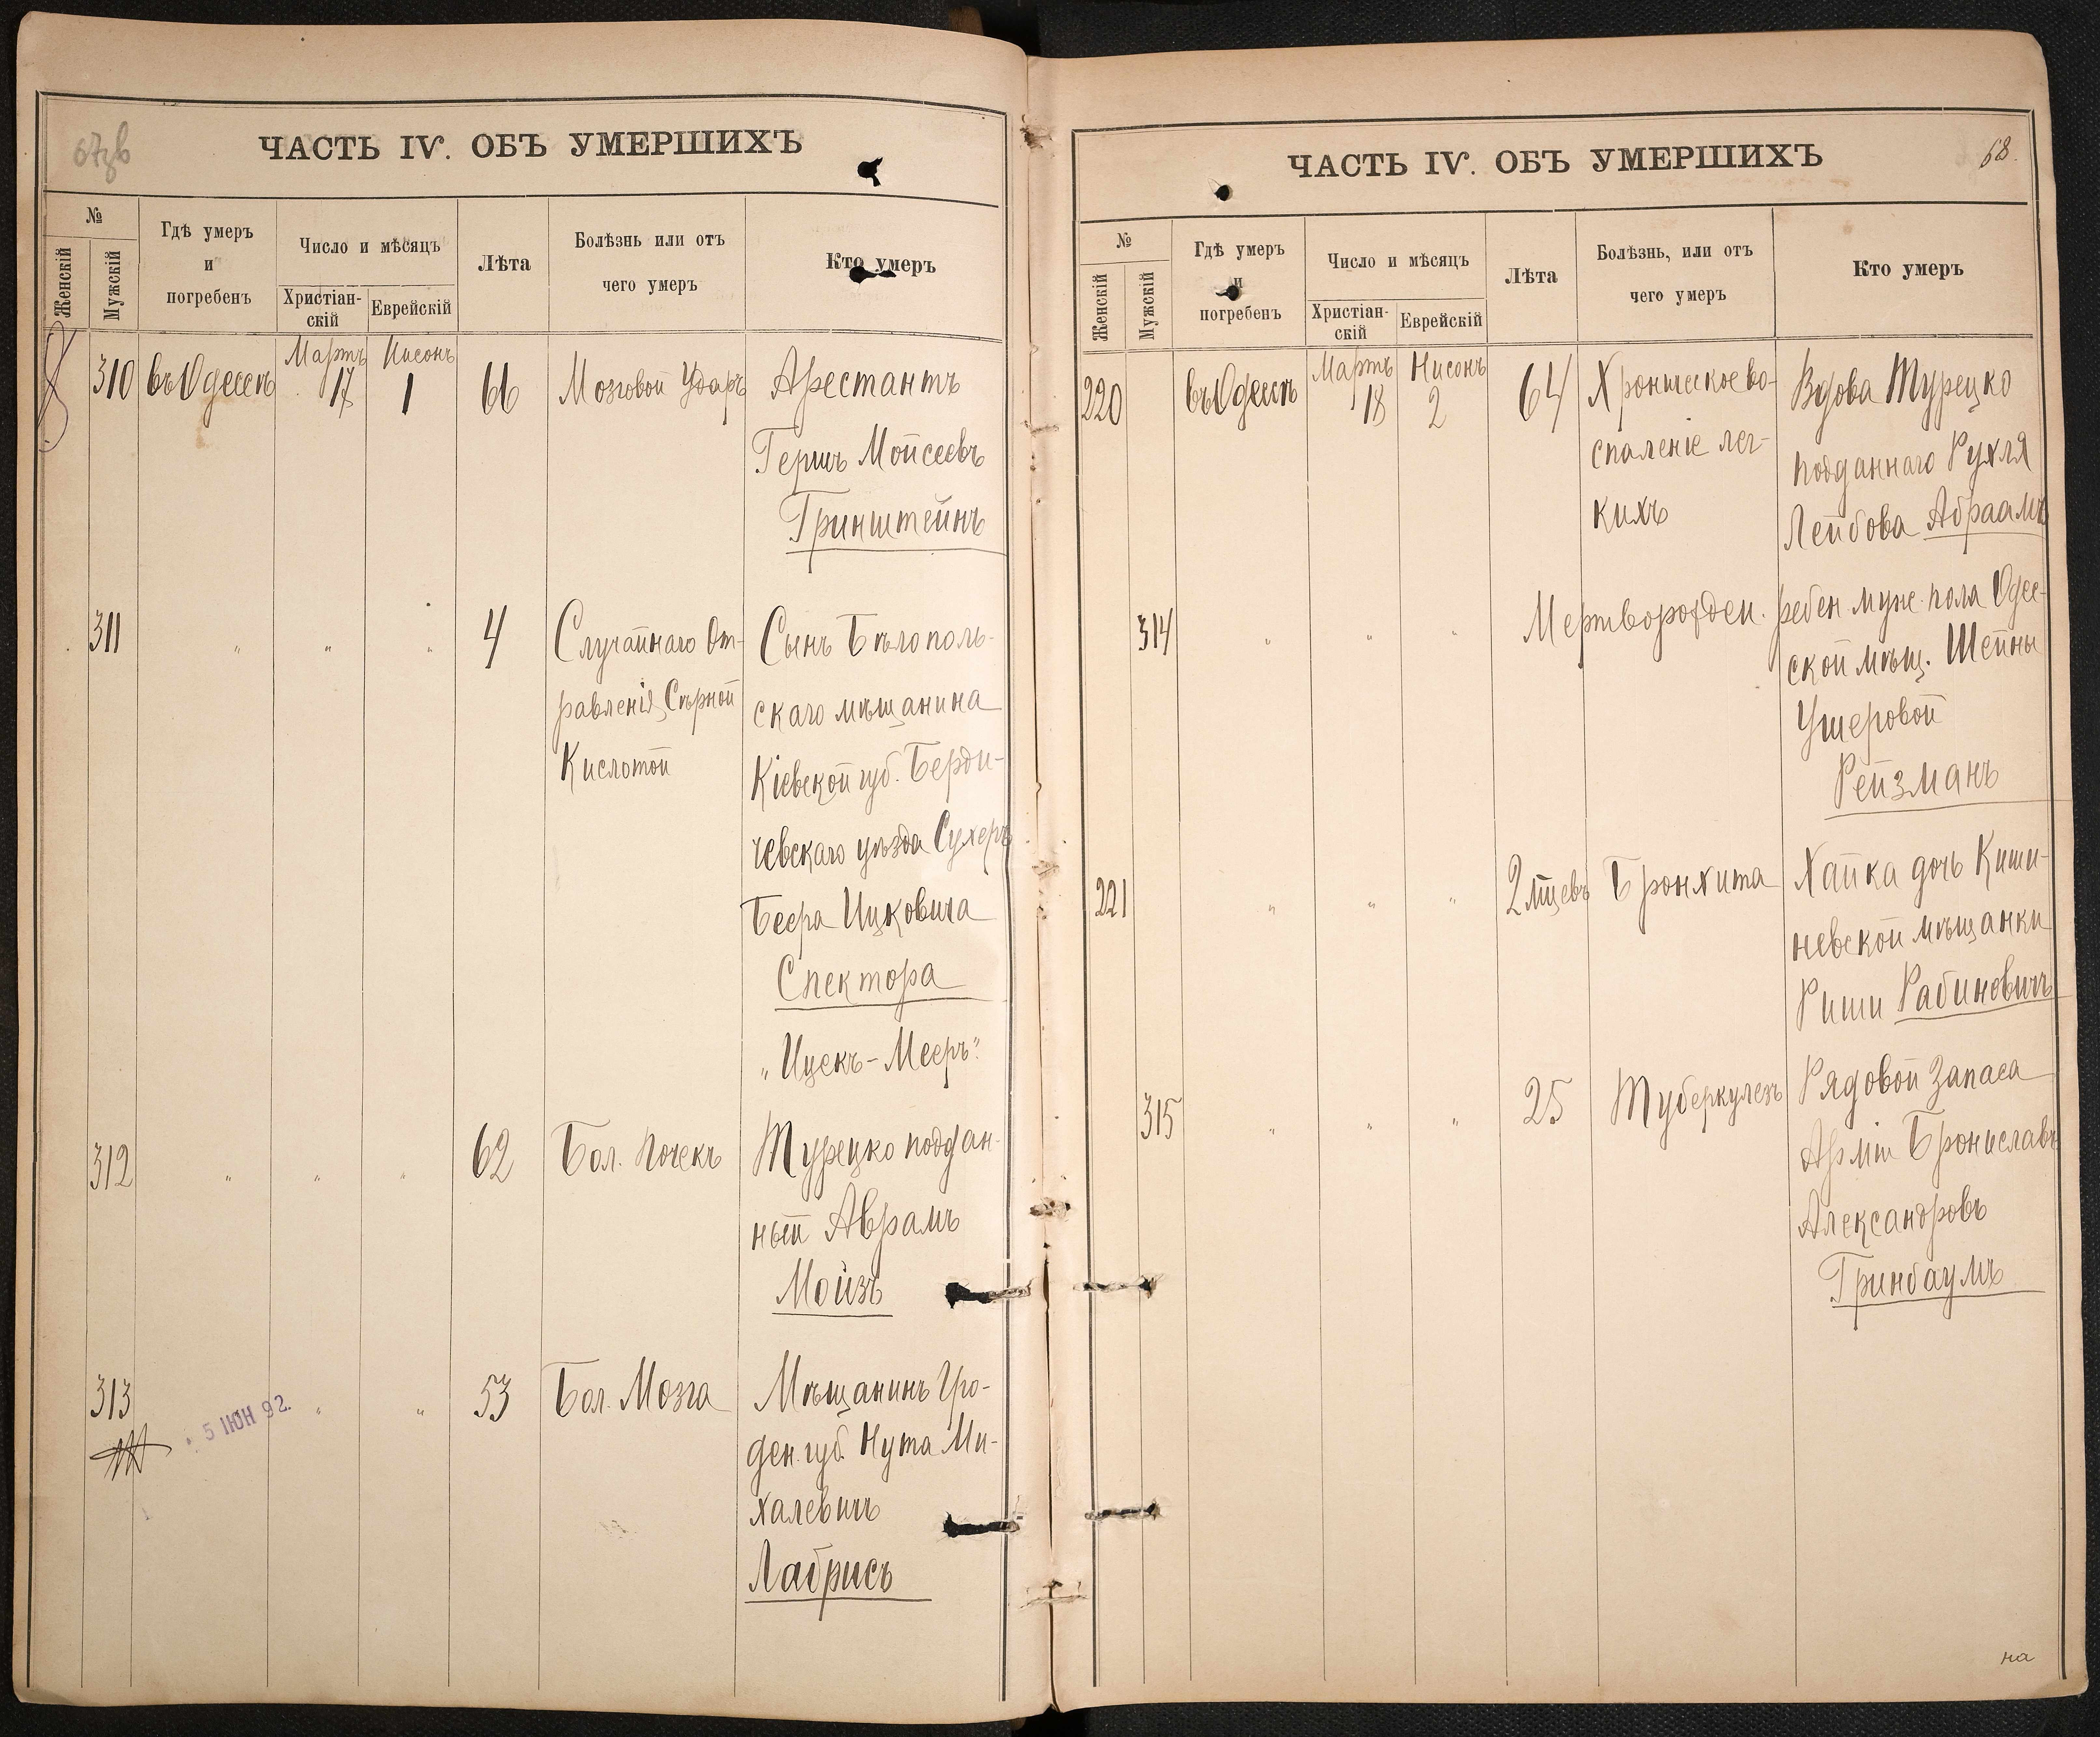 67зв
ЧАСТЬ IV. ОБЪ УМЕРШИХЪ
№
Женскій
Мужскій
Гдѣ умеръ
и
погребенъ
Число и мѣсяцъ
Христіан-
скій
Еврейскій
Лѣта
Болѣзнь или отъ
чего умеръ
Кто умеръ
310 въ Одессѣ Мартъ 17 Нисонъ 1 66 Мозговой Ударъ Арестантъ
Гершъ Мойсеевъ
Гринштейнъ
311 " " " 4 Случайнаго От- Сынъ Бѣлополь-
равленія Сѣрной скаго мѣщанина
Кислотой Кіевской губ. Берди-
чевскаго уѣзда Сухеръ
Беера Ицковича
Спектора
„Ицекъ-Мееръ"
312 " " " 62 Бол. Почекъ Турецко поддан-
ный Аврамъ
Мойзъ
313 " " 53 Бол. Мозга Мѣщанинъ Гро-
5 ІЮН 92.
ден. губ. Нута Ми-
халевичъ
Лабрисъ
68.
ЧАСТЬ IV. ОБЪ УМЕРШИХЪ
№
Женскій
Мужскій
Гдѣ умеръ
и
погребенъ
Число и мѣсяцъ
Христіан-
скій
Еврейскій
Лѣта
Болѣзнь, или отъ
чего умеръ
Кто умеръ
220 въ Одессѣ Мартъ 18 Нисонъ 2 64 Хроническое во- Вдова Турецко
спаленіе лег- подданнаго Рухля
кихъ Лейбова Абраамъ
314 " " " Мертворожден. ребен. муж. пола Одес-
ской мѣщ. Шейны
Ушеровой
Рейзманъ
221 " " " 2 мѣсцевъ Бронхита Хайка дочь Киши-
невской мѣщанки
Риши Рабиновичъ
315 " " " 25 Туберкулезъ Рядовой Запаса
Арміи Брониславъ
Александровъ
Гринбаумъ
на